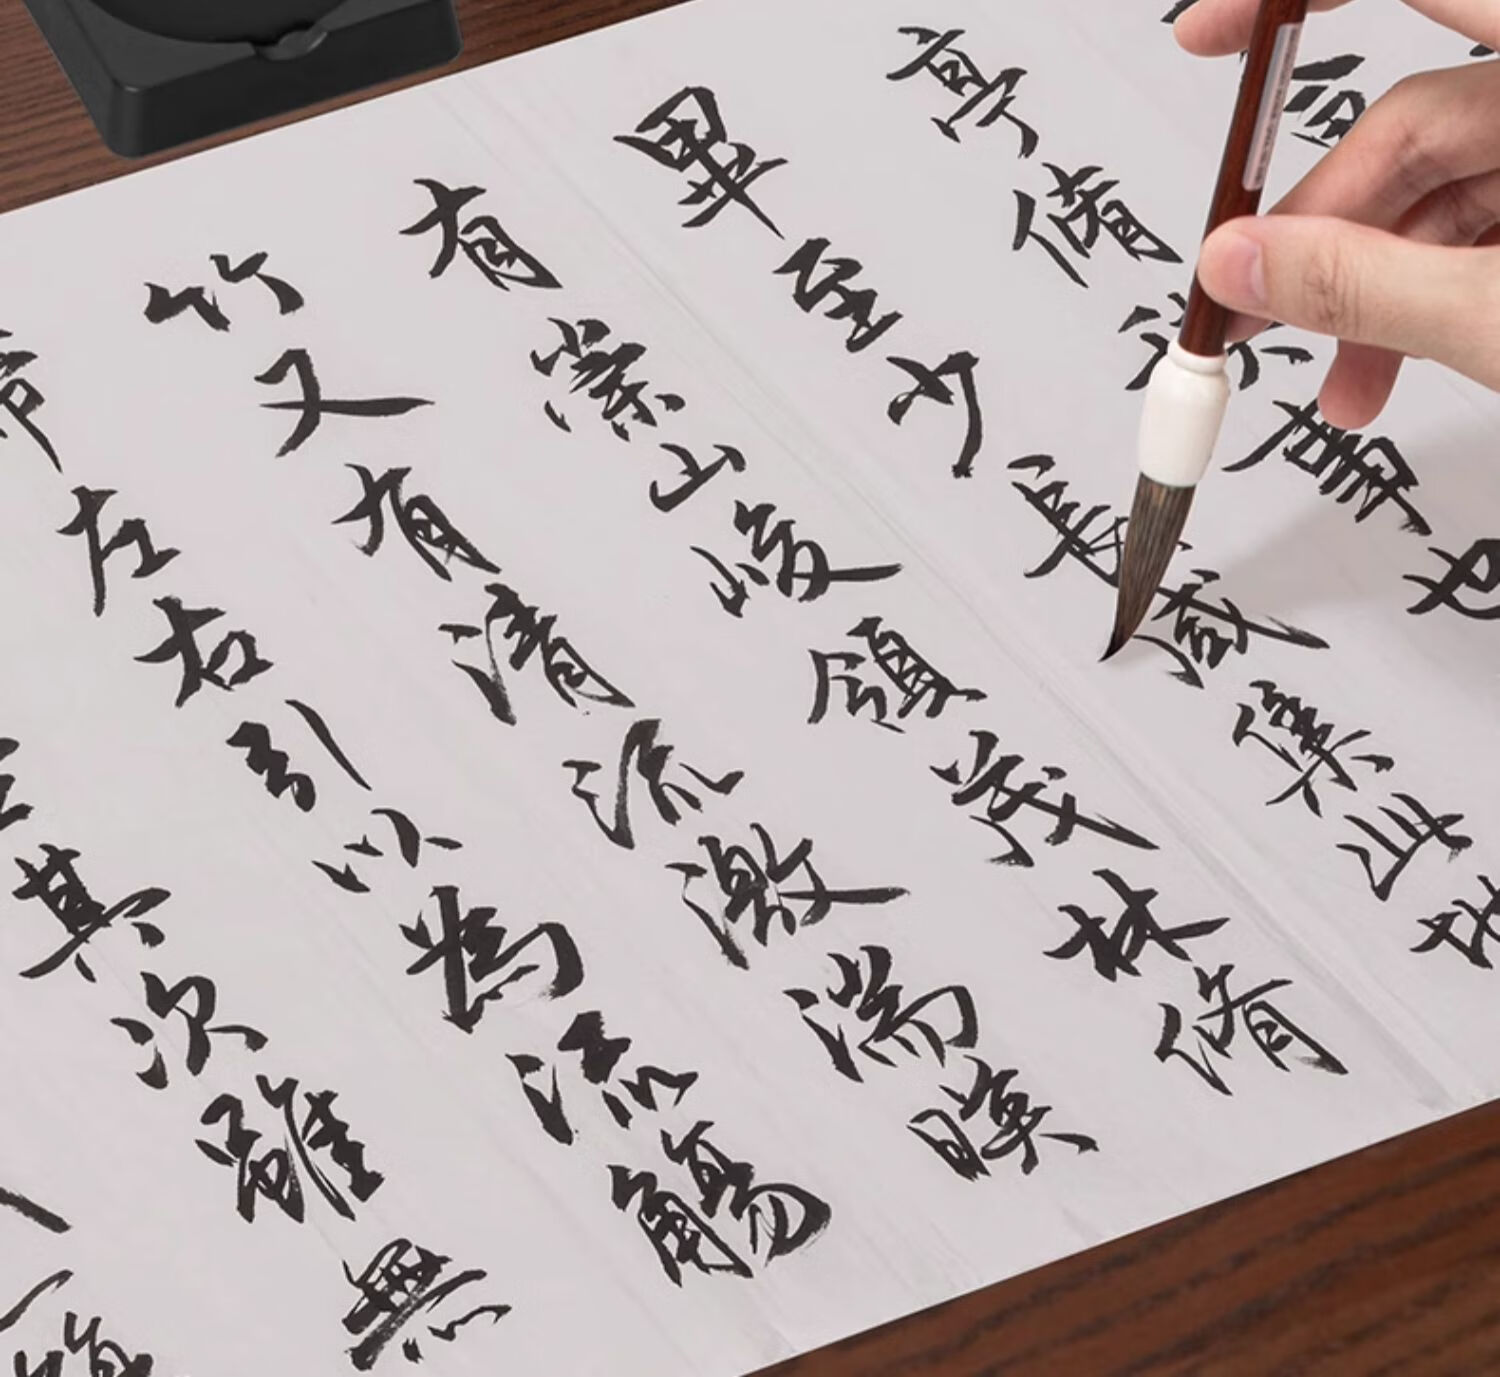 亭脩禊事也
畢至少長咸集此地
有崇山峻領茂林脩
竹又有清流激湍暎
帶左右引以為流觴
其次雖無